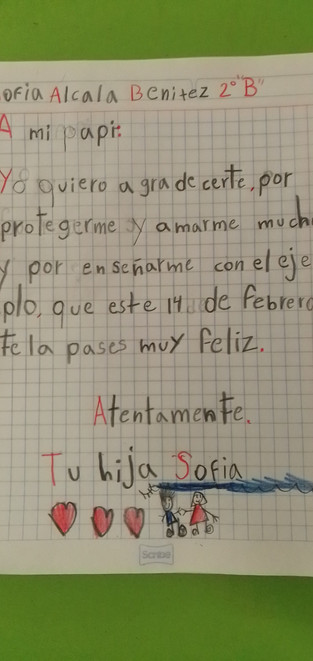 ofia Alcala Benitez 2° "B"
A mi papi:
Yo quiero agradecerte, por
protegerme y amarme much
y por enseñarme con el eje
plo, que este 14 de febrero
te la pases muy feliz.
Atentamente.
Tu hija Sofia
Scribe